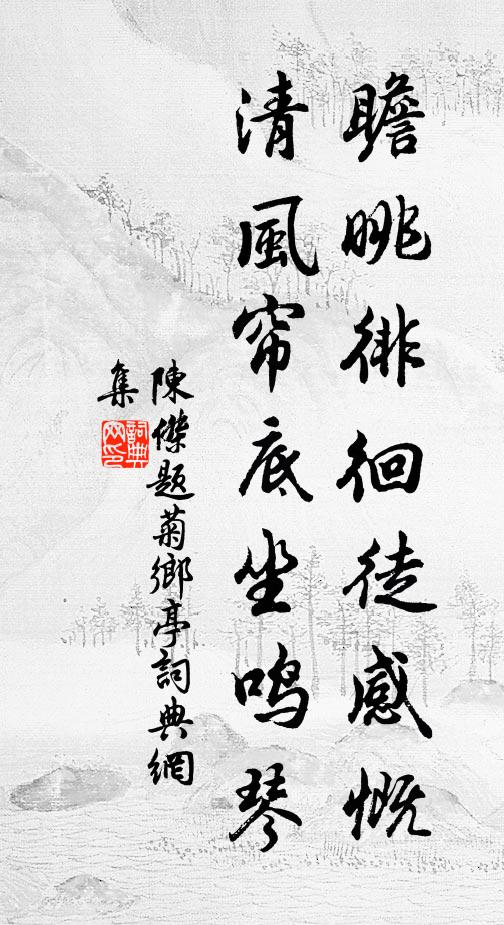 瞻眺徘徊徒感慨
清風帘底坐鳴琴
陳傑題菊鄉亭詞典網
集
詞典
网印